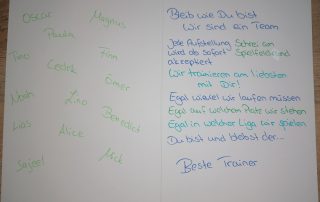 Oscar
Magnus
Paula
Tino
Finn
Cedrik
Emer
Noah
Lino
Benedict
Lias
Alick
Sajeel
Mick
Bleib wie Du bist
Wir sind ein Team
Jede Aufstellung Schrei am
wird ab sofort Spielfeldrand
akzeptiert
Wir trainieren am liebsten
mit Dir!
Egal wieviel wir laufen müssen
Egal auf welchem Platz wir stehen
Egal in welcher Liga wir spielen
Du bist und bleibst der...
Beste Trainer